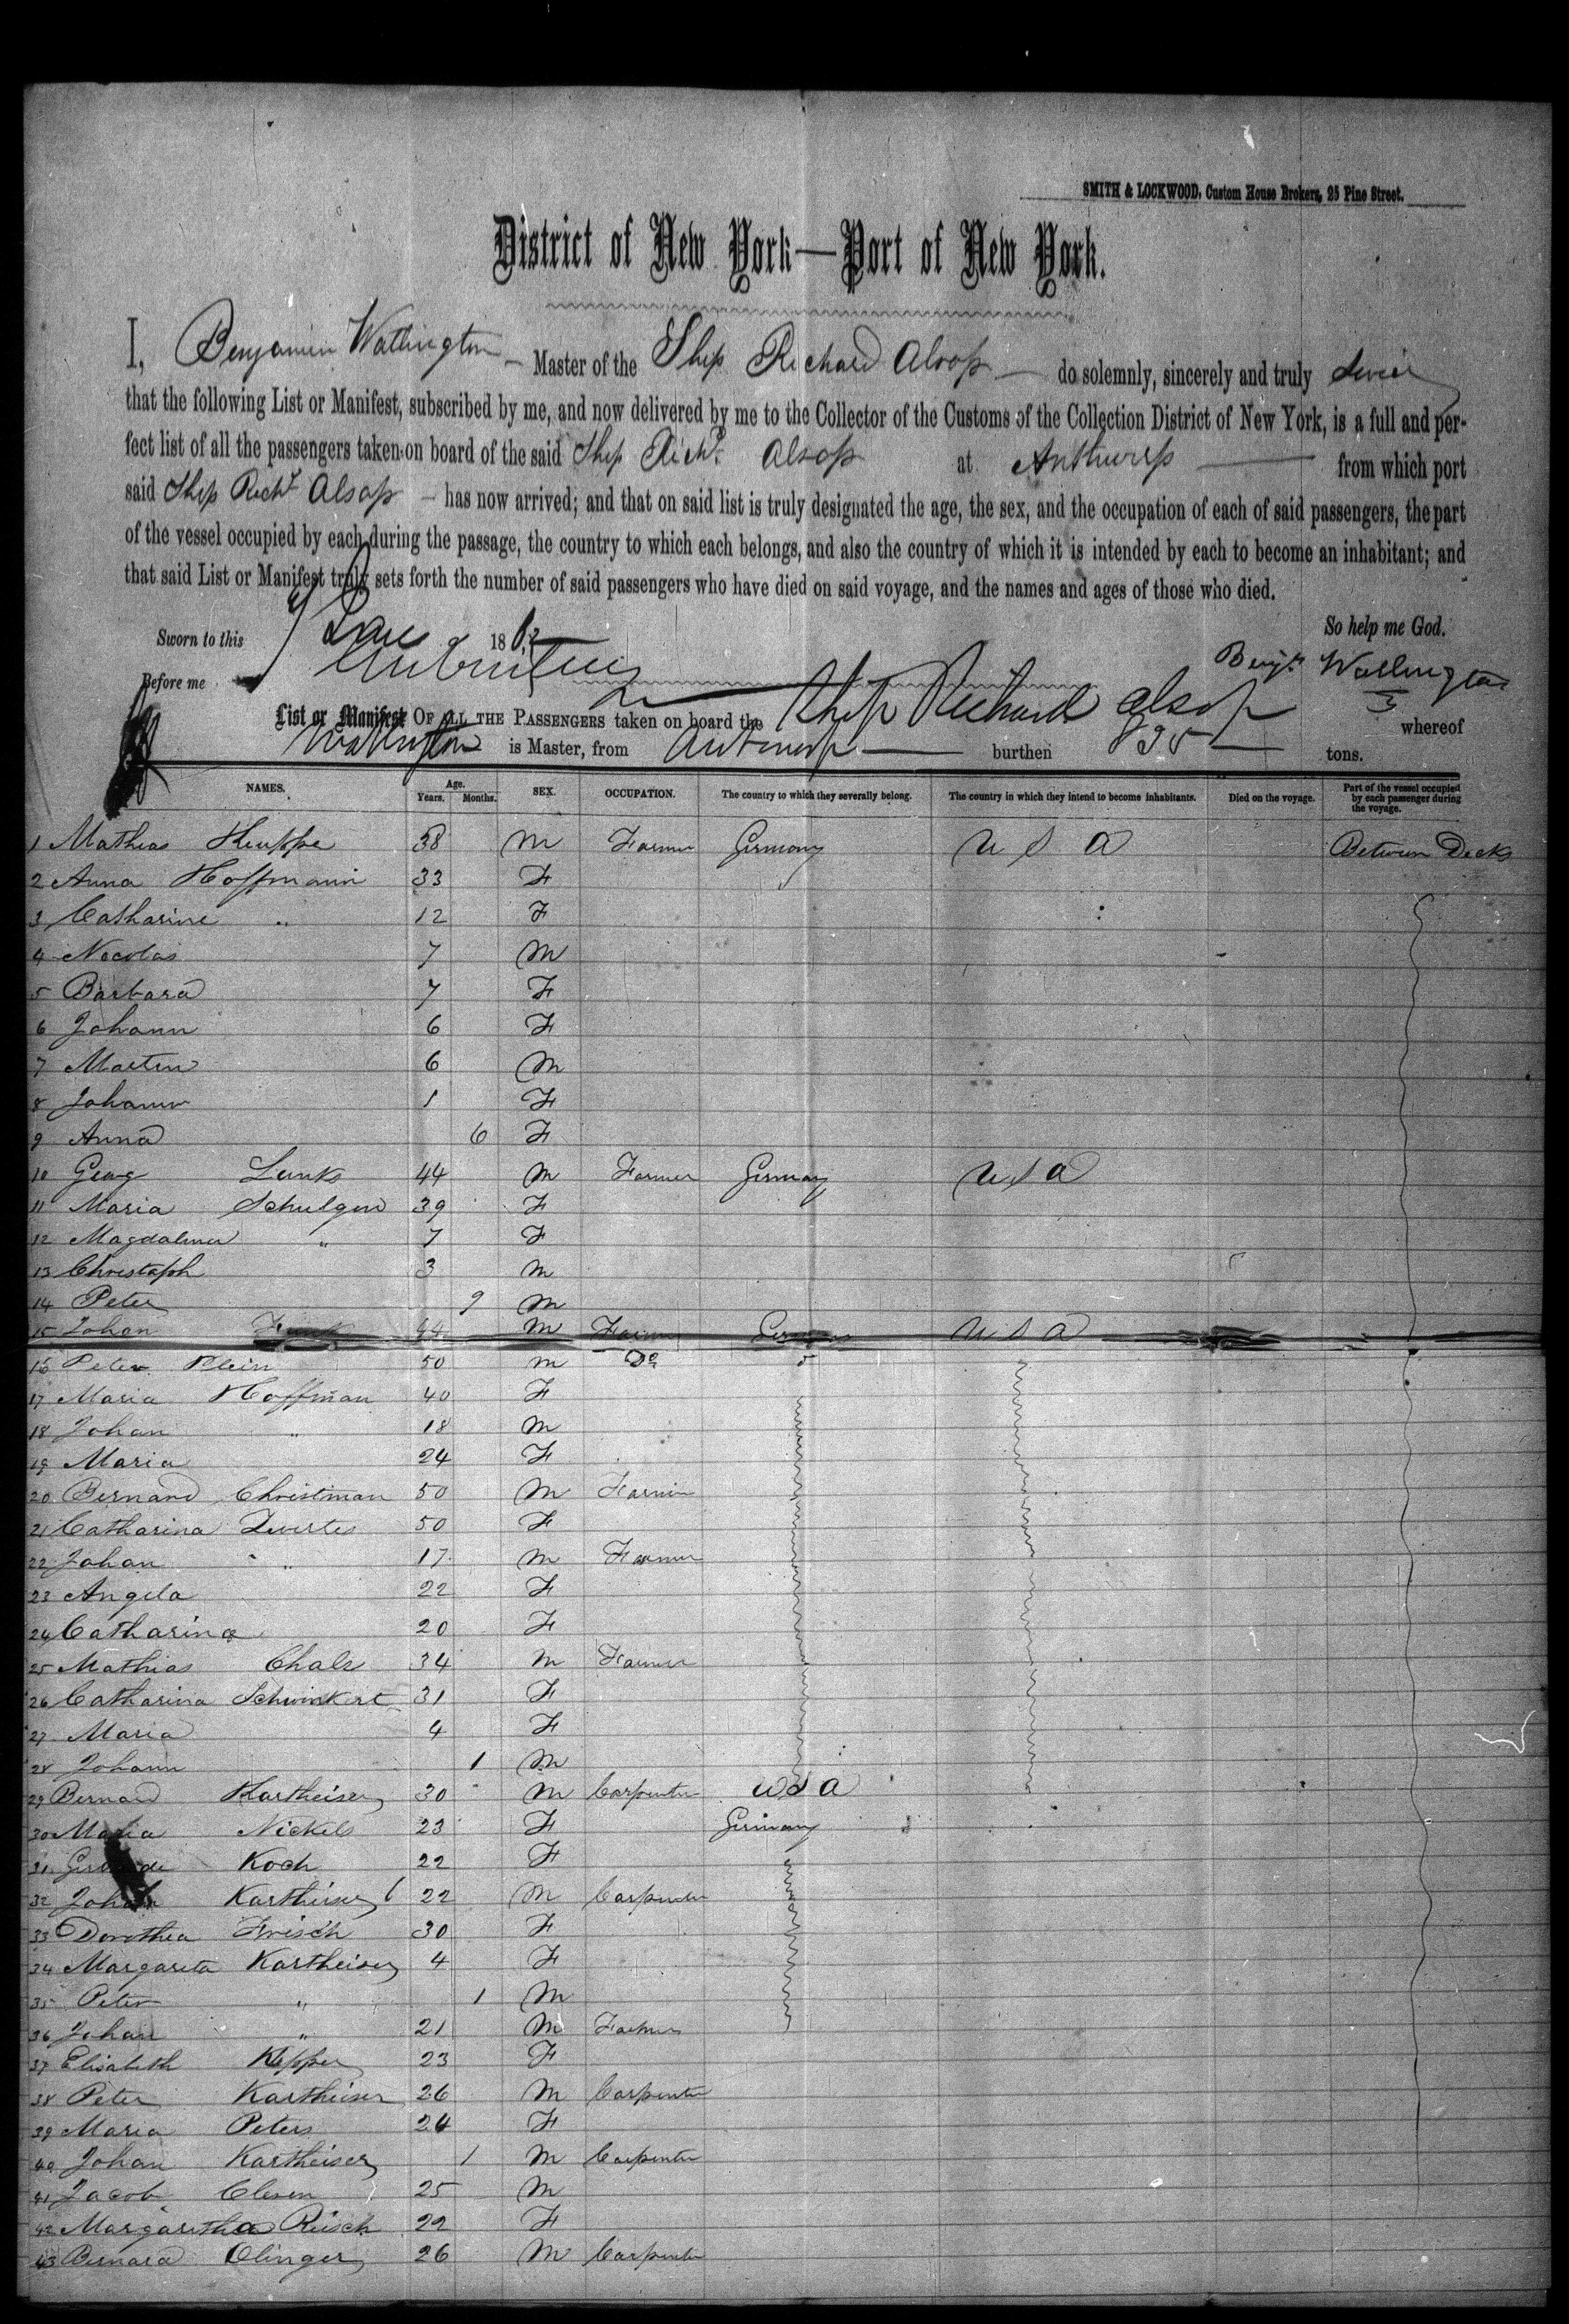 SMITH & LOCKWOOD, Custom House Brokers, 25 Pine Street.
District of New York—Port of New York.
I, Benjamin Watlington — Master of the Ship Richard Alsop — do solemnly, sincerely and truly swear
that the following List or Manifest, subscribed by me, and now delivered by me to the Collector of the Customs of the Collection District of New York, is a full and per-
fect list of all the passengers taken on board of the said Ship Richd Alsop at Anthwerp — from which port
said Ship Richd Alsop — has now arrived; and that on said list is truly designated the age, the sex, and the occupation of each of said passengers, the part
of the vessel occupied by each during the passage, the country to which each belongs, and also the country of which it is intended by each to become an inhabitant; and
that said List or Manifest truly sets forth the number of said passengers who have died on said voyage, and the names and ages of those who died.
So help me God.
Sworn to this 186
Before me
Benjn Watlington
List or Manifest OF ALL THE PASSENGERS taken on board the Ship Richard Alsop whereof
Watlington is Master, from Antwerp — burthen 835 tons.
NAMES. Age. Years. Months. SEX. OCCUPATION. The country to which they severally belong. The country in which they intend to become inhabitants. Died on the voyage. Part of the vessel occupied by each passenger during the voyage.
1 Mathias 38 M Farmer Germany U S A Between Decks
2 Anna Hoffmann 33 F
3 Catharine " 12 F
4 Nicolas 7 M
5 Barbara 7 F
6 Johann 6 F
7 Martin 6 M
8 Johann 1 F
9 Anna 6 F
10 Georg Lunks 44 M Farmer Germany U S A
11 Maria Schulgen 39 F
12 Magdalena " 7 F
13 Christoph 3 M
14 Peter 9 M
15 Johan 44 M Farmer Germany U S A
16 Peter Klein 50 M Do
17 Maria Hoffman 40 F
18 Johan " 18 M
19 Maria 24 F
20 Bernard Christman 50 M Farmer
21 Catharina 50 F
22 Johan " 17 M Farmer
23 Angela 22 F
24 Catharina 20 F
25 Mathias Chals 34 M Farmer
26 Catharina Schwinkert 31 F
27 Maria 4 F
28 Johann 1 M
29 Bernard Kartheiser 30 M Carpenter U S A
30 Maria Nickels 23 F Germany
31 Koch 22 F
32 Johan Kartheiser 22 M Carpenter
33 Dorothea Frisch 30 F
34 Margareta Kartheiser 4 F
35 Peter " 1 M
36 Johan " 21 M Farmer
37 Elisabeth Kepper 23 F
38 Peter Kartheiser 26 M Carpenter
39 Maria Peters 24 F
40 Johan Kartheiser 1 M Carpenter
41 Jacob Clesen 25 M
42 Margaretha Reisch 22 F
43 Bernard Olinger 26 M Carpenter